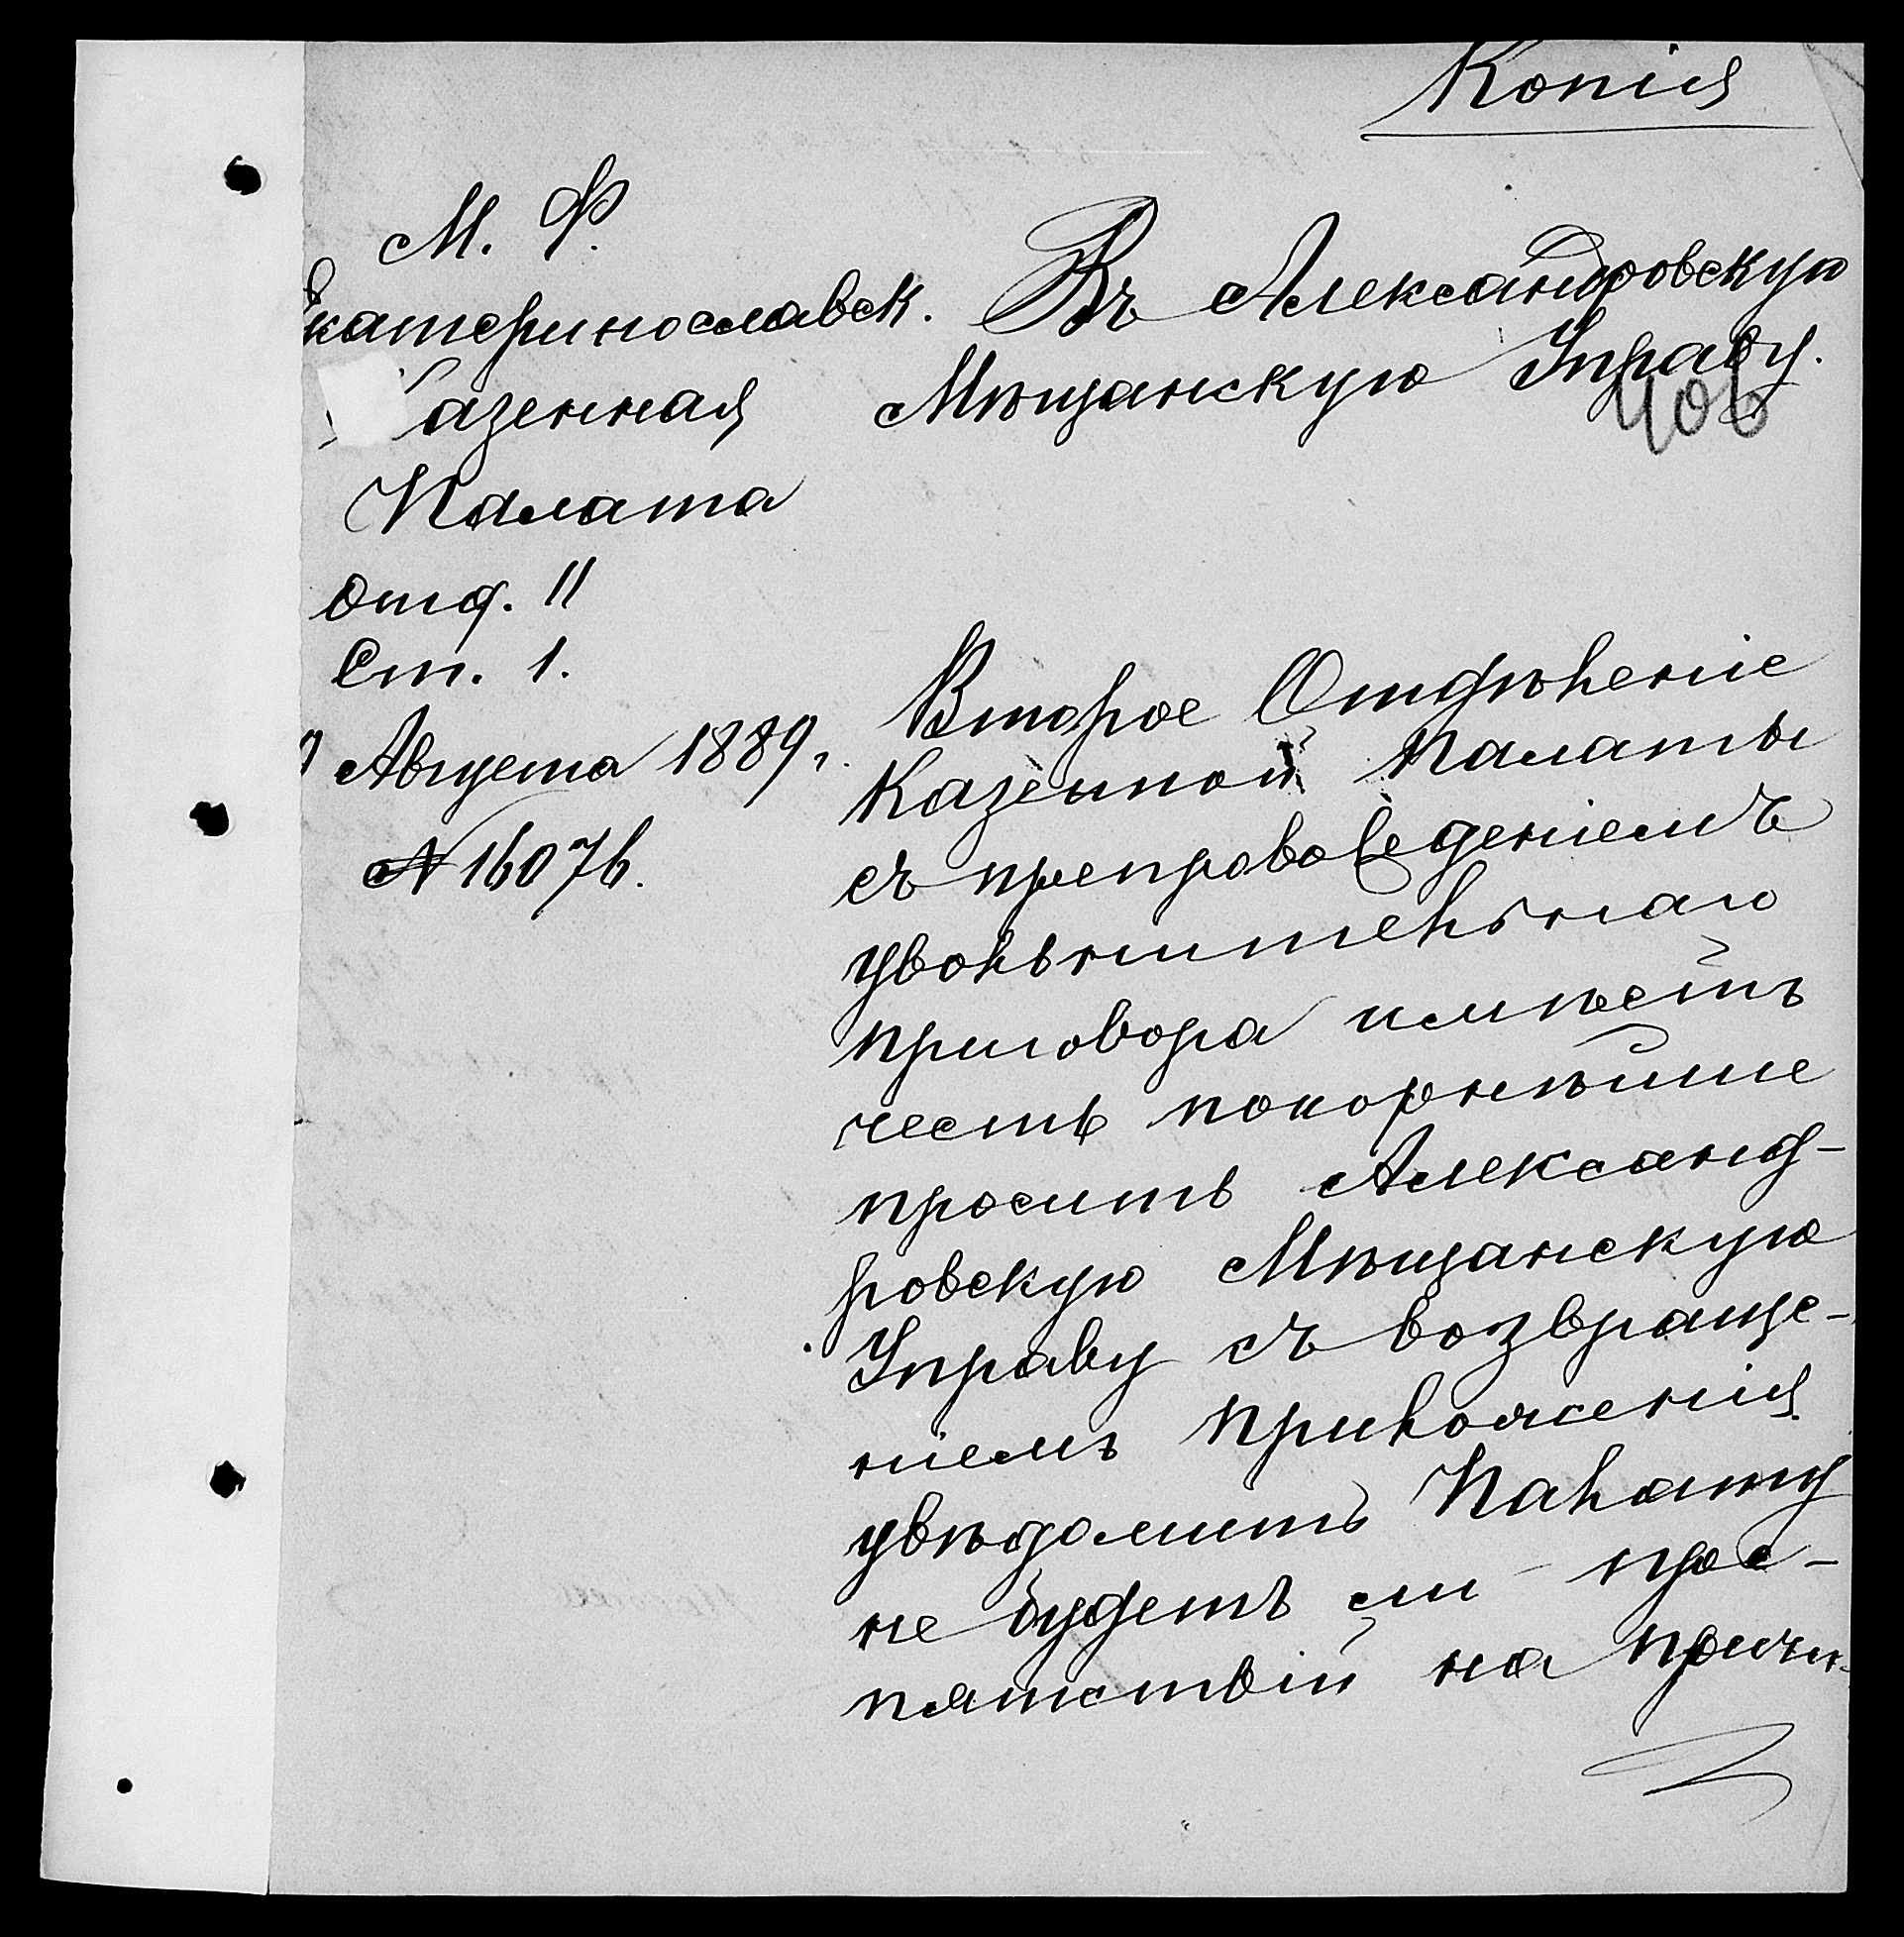 Копія
М. Ф.
Екатеринославск.
Казенная
Палата
Отд. II
Ст. 1.
Августа 1889 г.
№ 16076.
Въ Александровскую
Мѣщанскую Управу.
406
Второе Отдѣленіе
Казенной Палаты
съ препровожденіемъ
увольнительнаго
приговора имѣетъ
честь покорнѣйше
просить Александ-
ровскую Мѣщанскую
Управу съ возвраще-
ніемъ приложенія
увѣдомить Палату
не будетъ ли
пятствій на причи-